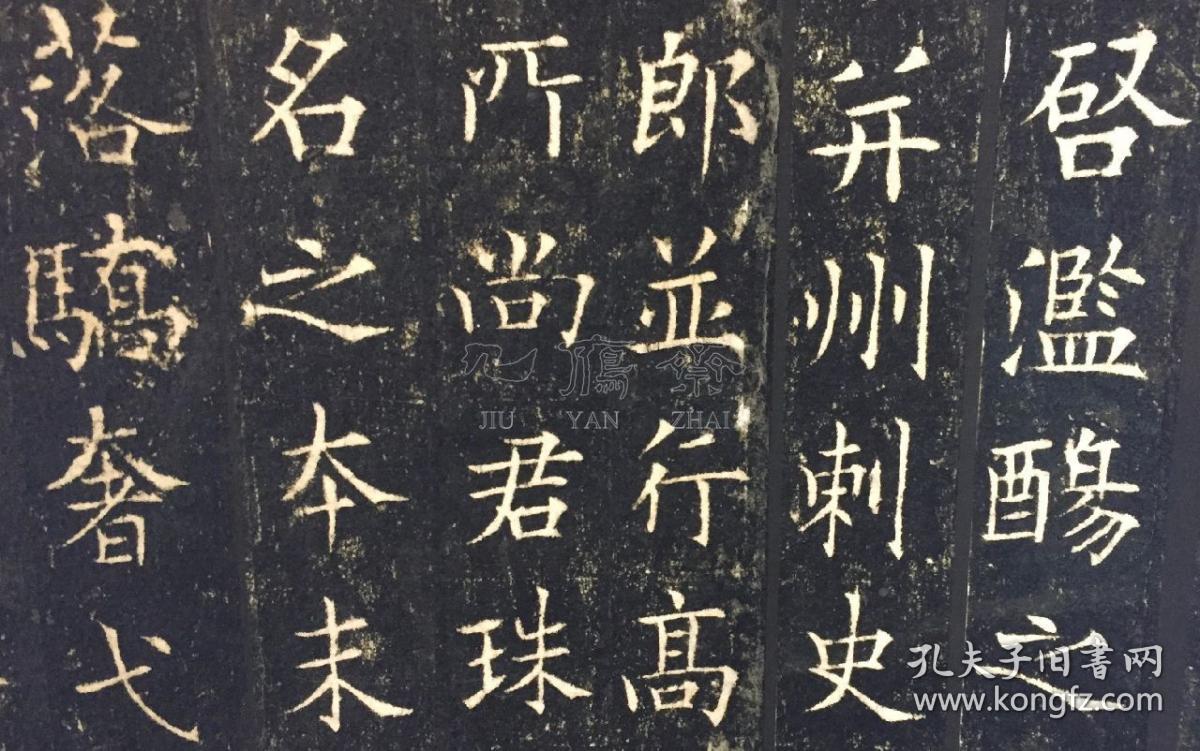 啓濫觴之
并州刺史
郎並行高
所尚君珠
名之本末
落驕奢弋
九鴈齋
JIU YAN ZHAI
孔夫子旧書网
www.kongfz.com